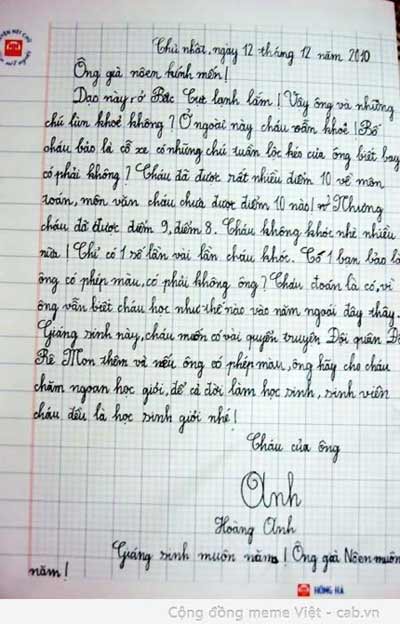 Chủ nhật, ngày 12 tháng 12 năm 2010
Ông già nôen kính mến!
Dạo này, ở Bắc Cực lạnh lắm! Vậy ông và những
chú lùn khoẻ không? Ở ngoài này cháu vẫn khoẻ! Bố
cháu bảo là cỗ xe có những chú tuần lộc kéo của ông biết bay
có phải không? Cháu đã được rất nhiều điểm 10 về môn
toán, môn văn cháu chưa được điểm 10 nào! Nhưng
cháu đã được điểm 9, điểm 8. Cháu không khóc nhè nhiều
nữa! Chỉ có 1 số lần vài lần cháu khóc. Có 1 bạn bảo là
ông có phép màu, có phải không ông? Cháu đoán là có, vì
ông vẫn biết cháu học như thế nào vào năm ngoái đây thây.
Giáng sinh này, cháu muốn có vài quyển truyện Đội quân Đô
Rê Mon thêm và nếu ông có phép màu, ông hãy cho cháu
chăm ngoan học giỏi, để cả đời làm học sinh, sinh viên
cháu đều là học sinh giỏi nhé!
Cháu của ông
Anh
Hoàng Anh
Giáng sinh muôn năm! Ông già Nôen muôn
năm!
HỒNG HÀ
Cộng đồng meme Việt - cab.vn